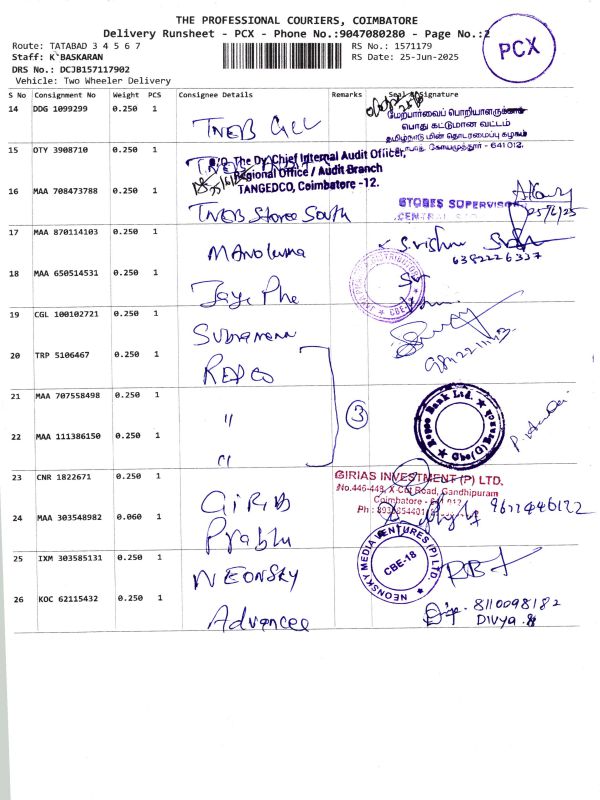 THE PROFESSIONAL COURIERS, COIMBATORE
Delivery Runsheet - PCX - Phone No.:9047080280 - Page No.:2
PCX
Route: TATABAD 3 4 5 6 7
RS No.: 1571179
Staff: K`BASKARAN
RS Date: 25-Jun-2025
DRS No.: DCJB157117902
Vehicle: Two Wheeler Delivery
S No Consignment No Weight PCS Consignee Details Remarks Seal & Signature
14 DDG 1099299 0.250 1
TNEB
மேற்பார்வைப் பொறியாளர்
பொது கட்டுமான வட்டம்
தமிழ்நாடு மின் தொடரமைப்பு கழகம்
கோயமுத்தூர் - 641 012.
15 OTY 3908710 0.250 1
TNEB
O/o The Dy.Chief Internal Audit Officer,
Regional Office / Audit Branch
TANGEDCO, Coimbatore -12.
16 MAA 708473788 0.250 1
TNEB Stores South
STORES SUPERVISOR
CENTRAL
25/6/25
17 MAA 870114103 0.250 1
S. vishnu
6382226337
18 MAA 650514531 0.250 1
19 CGL 100102721 0.250 1
20 TRP 5106467 0.250 1
REPCO
3
21 MAA 707558498 0.250 1
"
Repco Bank Ltd.
22 MAA 111386150 0.250 1
"
23 CNR 1822671 0.250 1
GIRIAS
GIRIAS INVESTMENT (P) LTD.
No.446-448, X-Cut Road, Gandhipuram
Coimbatore - 641 012
24 MAA 303548982 0.060 1
Prabhu
25 IXM 303585131 0.250 1
NEONSKY
NEONSKY MEDIA VENTURES (P) LTD.
CBE-18
26 KOC 62115432 0.250 1
Advancee
8110098182
DIVYA.